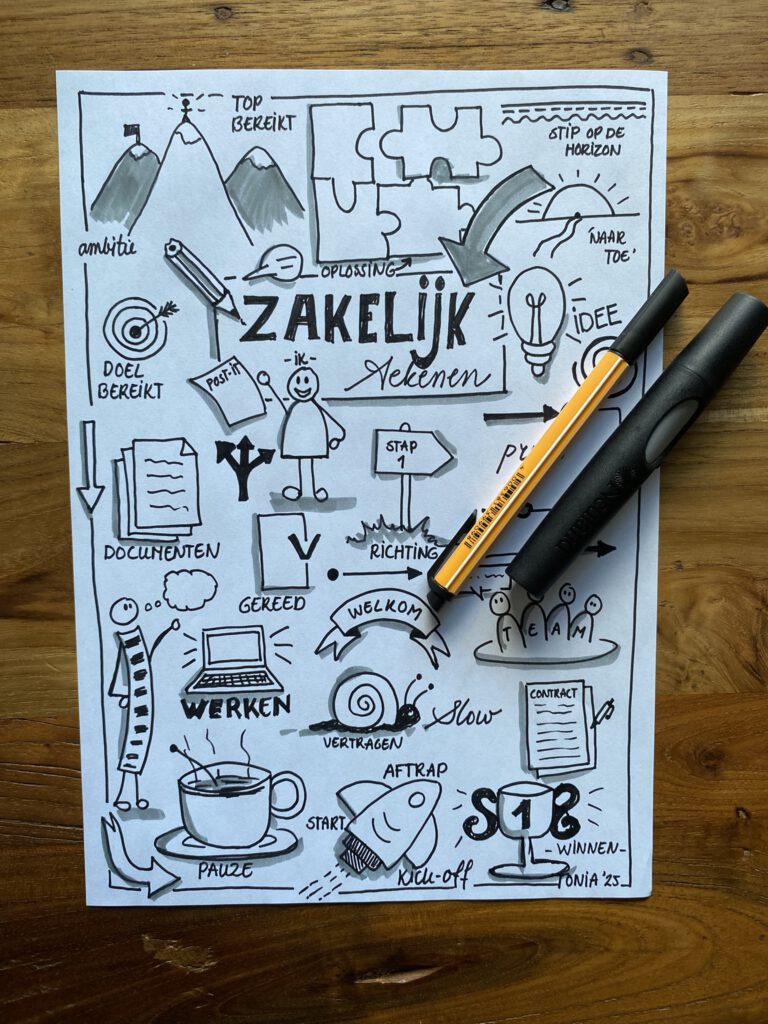 TOP
BEREIKT
STIP OP DE
HORIZON
ambitie
'NAAR
TOE'
OPLOSSING
ZAKELIJK
tekenen
IDEE
DOEL
BEREIKT
POST-IT
-IK-
STAP
1
DOCUMENTEN
RICHTING
GEREED
WELKOM
TEAM
WERKEN
Slow
VERTRAGEN
CONTRACT
AFTRAP
START
1
-WINNEN-
PAUZE
Kick-off
TONIA '25